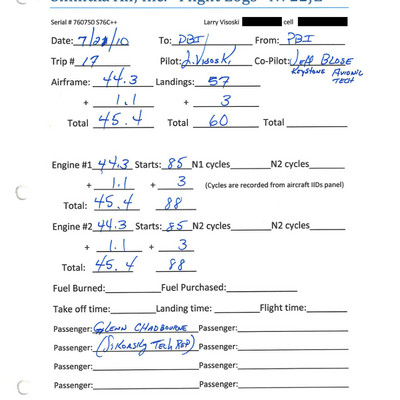 Serial # 760750 S76C++ Larry Visoski cell
Date: 7/21/10 To: PBI From: PBI
Trip # 17 Pilot: L. Visoski Co-Pilot: Jeff Blose
Keystone Avionic
Tech
Airframe: 44.3 Landings: 57
+ 1.1 + 3
Total 45.4 Total 60 Total
Engine #1 44.3 Starts: 85 N1 cycles N2 cycles
+ 1.1 + 3 (Cycles are recorded from aircraft IIDs panel)
Total: 45.4 88
Engine #2 44.3 Starts: 85 N1 cycles N2 cycles
+ 1.1 + 3
Total: 45.4 88
Fuel Burned: Fuel Purchased:
Take off time: Landing time: Flight time:
Passenger: Glenn Chadbourne Passenger:
Passenger: (Sikorsky Tech Rep) Passenger:
Passenger: Passenger:
Passenger: Passenger: